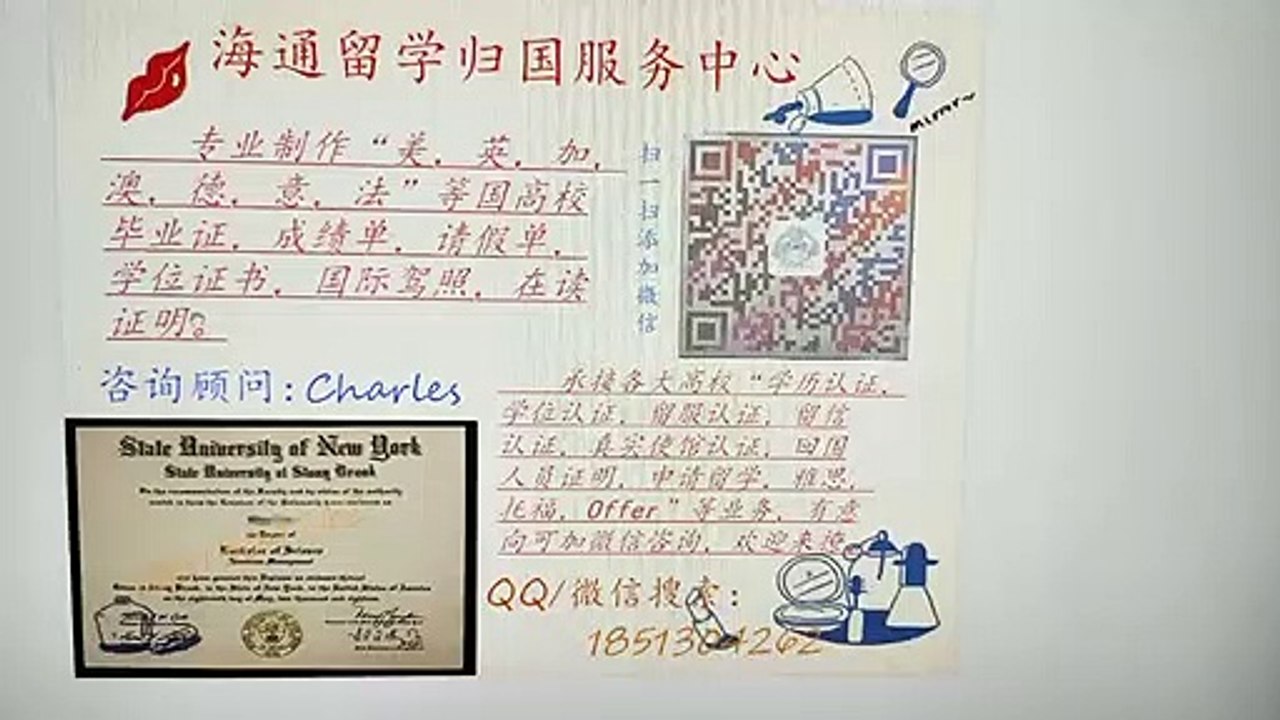 海通留学归国服务中心
mirror~
专业制作“美，英，加，
澳，德，意，法”等国高校
毕业证，成绩单，请假单，
学位证书，国际驾照，在读
证明。
扫一扫添加微信
咨询顾问：Charles
承接各大高校“学历认证，
学位认证，留服认证，留信
认证，真实使馆认证，回国
人员证明，申请留学，雅思，
托福，Offer”等业务，有意
向可加微信咨询，欢迎来
QQ/微信搜索：
State University of New York
State University at Stony Brook
Bachelor of Science